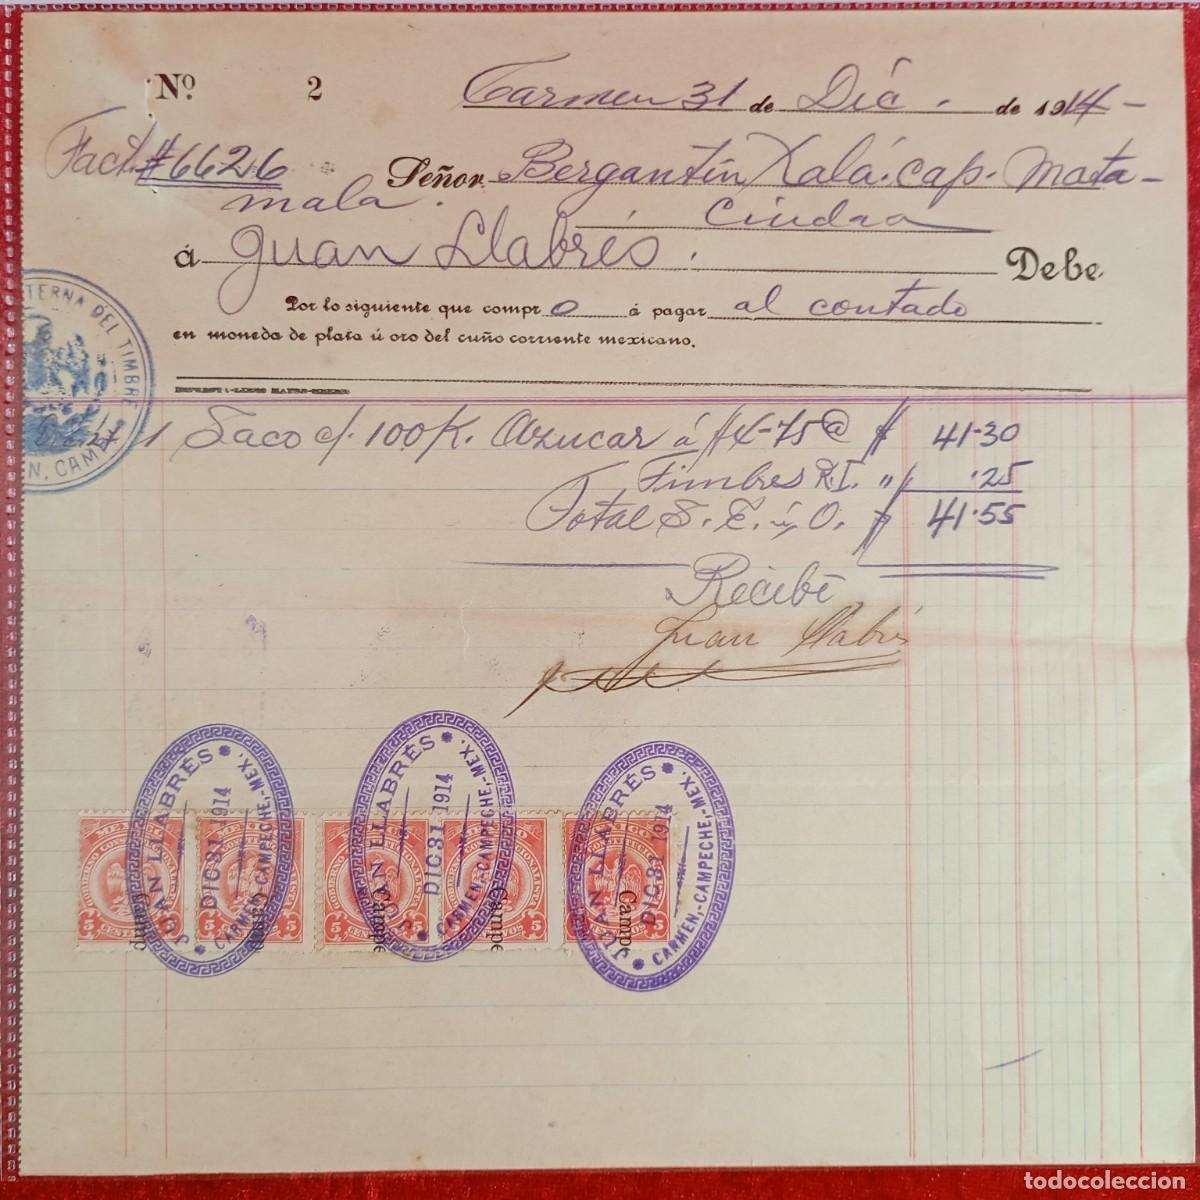 Nº 2 Carmen 31 de Dic. de 1914-
Fact. #6626 Señor Bergantín Xalá. cap. Mata-
mala. Ciudad
á Juan Llabrés. Debe.
Por lo siguiente que compró á pagar al contado
en moneda de plata ú oro del cuño corriente mexicano.
1 Saco c/. 100 K. Azucar á $4-75@ $ 41-30
Timbres R.I. " " .25
Total S. E. ú O. $ 41.55
Recibí
Juan Llabrés
TERNA DEL TIMBRE
N, CAMP
JUAN LLABRÉS
DIC 31 1914
CARMEN,-CAMPECHE,-MEX.
JUAN LLABRÉS
DIC 31 1914
CARMEN,-CAMPECHE,-MEX.
JUAN LLABRÉS
DIC 31 1914
CARMEN,-CAMPECHE,-MEX.
5 5 5 5 5 CENTAVOS 5 5
Camp Camp Campe Campe Camp
todocoleccion